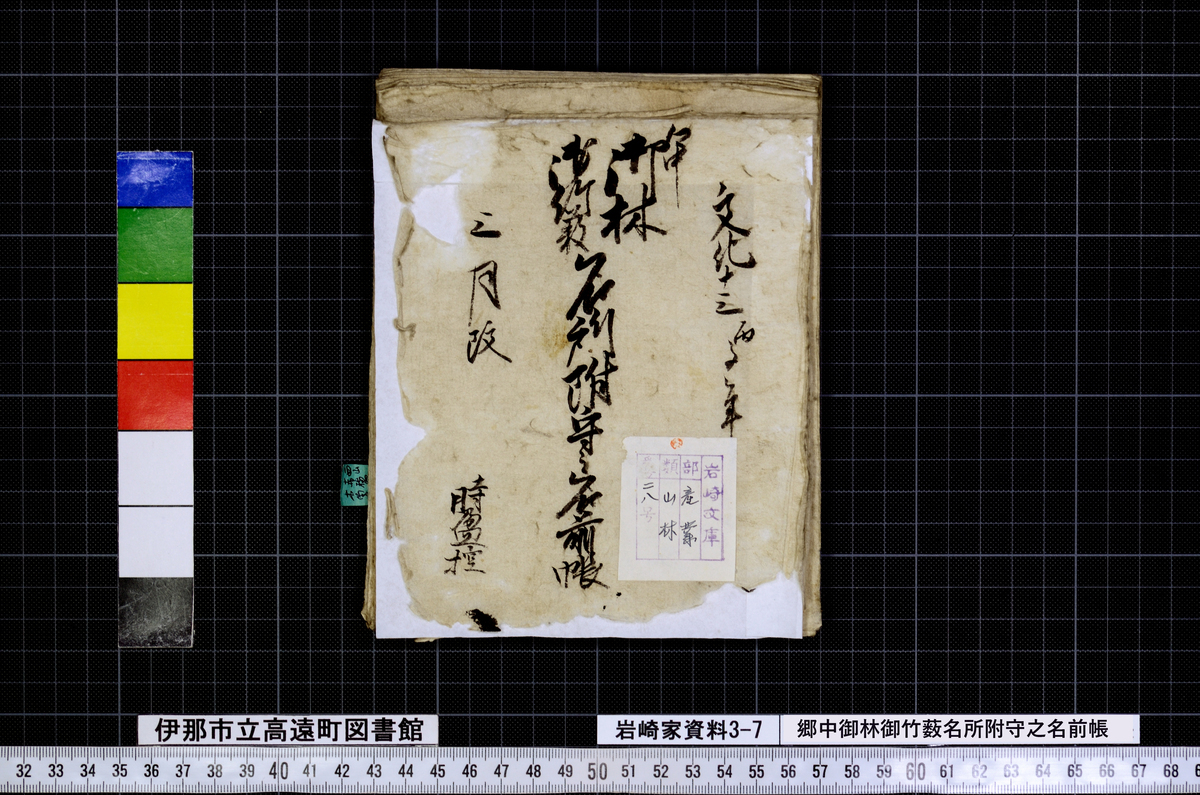 文化十三丙子年
郷中
御林
御竹薮
名所附守之名前帳
三月改
時盈控
岩崎文庫
部 産業
類 山林
二八号
伊那市立高遠町図書館
岩崎家資料3-7
郷中御林御竹薮名所附守之名前帳
32 33 34 35 36 37 38 39 40 41 42 43 44 45 46 47 48 49 50 51 52 53 54 55 56 57 58 59 60 61 62 63 64 65 66 67 68